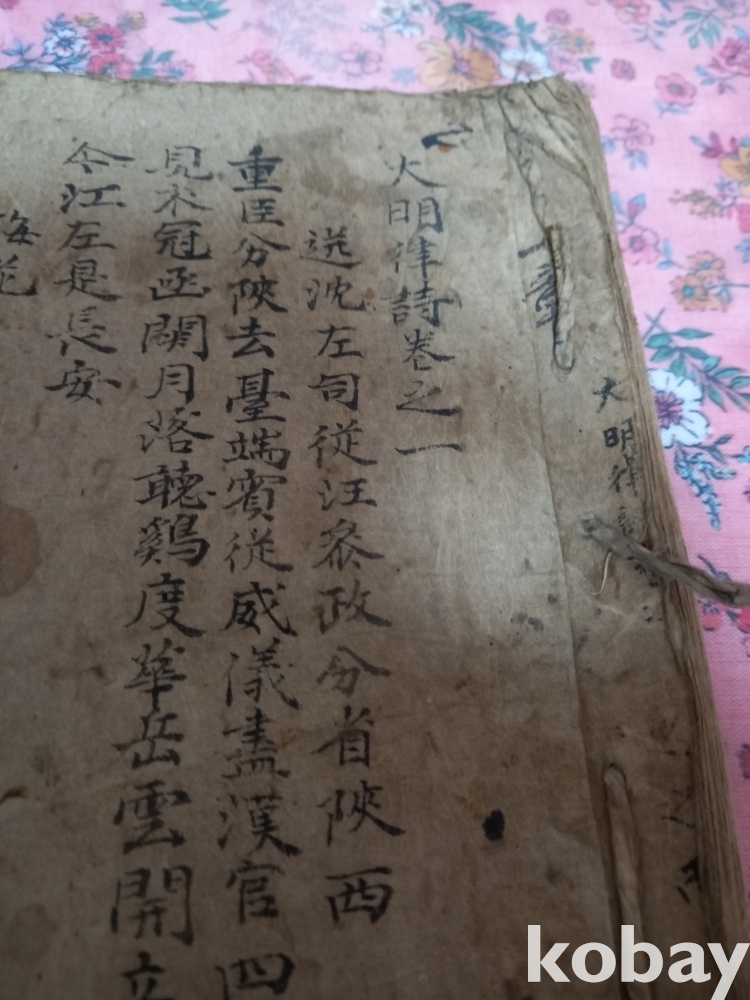 大明律
大明律詩卷之一
送沈左司從汪叅政分省陝西
重臣分陝去臺端賓從威儀盡漢官四
見衣冠函關月落聽鷄度華岳雲開立
今江左是長安
kobay